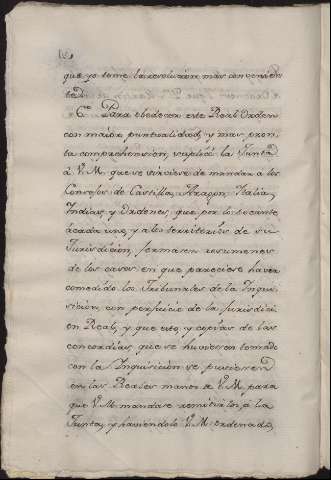 que yo tome la resolucion mas convenien
te.
6.º Para obedecer este Real Orden
con maior puntualidad, y mas pron
ta comprehension, suplicò la Junta
à V. M. que se sirviese de mandar a los
Consejos de Castilla, Aragon, Italia,
Indias, y Ordenes, que por lo tocante
à cada uno, y a los territorios de su
Jurisdicion, formasen resumenes
de los casos en que pareciese haver
excedido los Tribunales de la Inqui
sicion, con perjuicio de la Jurisdici
on Real, y que esto, y copias de las
concordias, que se huviesen tomado
con la Inquisicion se pusiesen
en las Reales manos de V. M. para
que V. M. mandase remitirlos à la
Junta, y haviendolo V. M. ordenado,